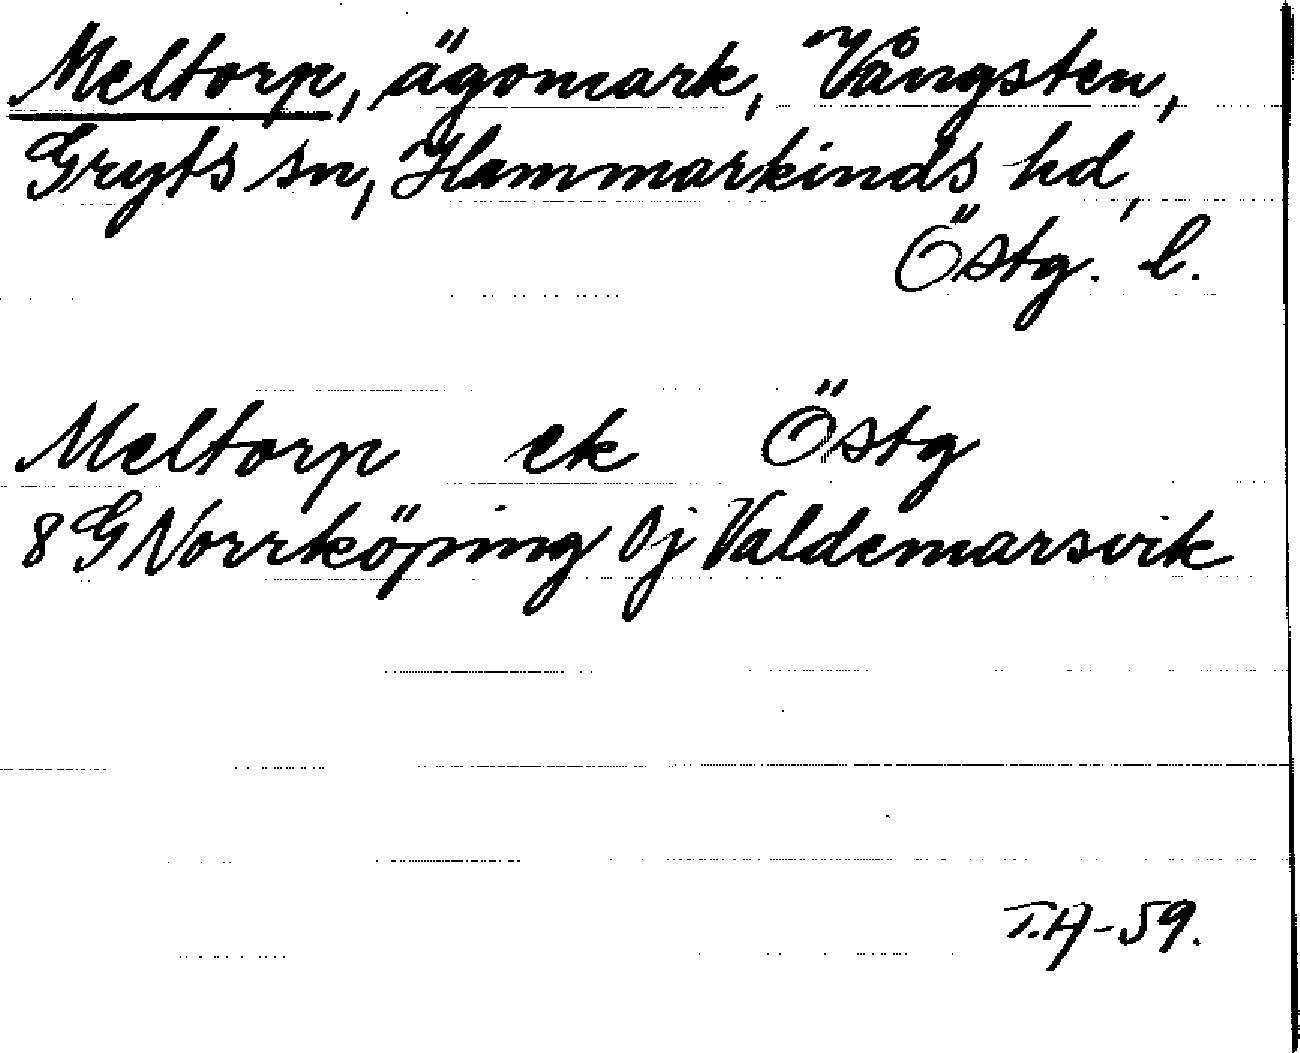 Meltorp, ägomark, Vångsten,
Gryts sn, Hammarkinds hd,
Östg. l.
Meltorp ek Östg
8G Norrköping 0j Valdemarsvik
T.A-59.